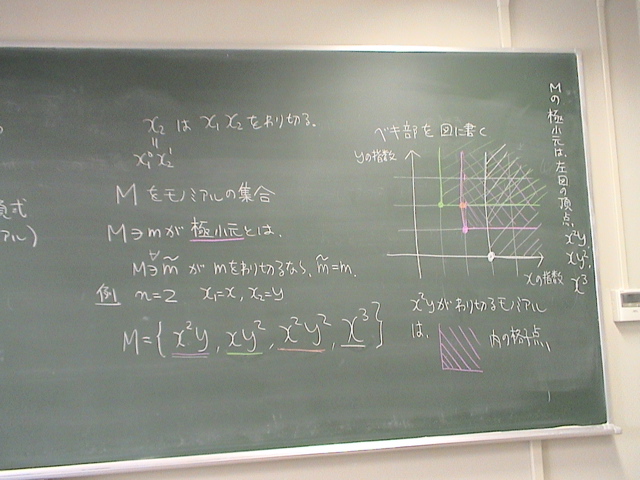 x₂ は x₁ x₂ をわり切る.
॥
x₁⁰ x₂¹
M をモノミアルの集合
M∋m が 極小元とは.
M∋∀m̃ が mをわり切るなら, m̃=m.
例 n=2 x₁=x, x₂=y
M={x²y, xy², x²y², x³}
アル)
ベキ部を図に書く
yの指数
xの指数
x²yがわり切るモノミアル
は, 内の格子点,
Mの極小元は、左図の頂点.
x²y.
xy².
x³